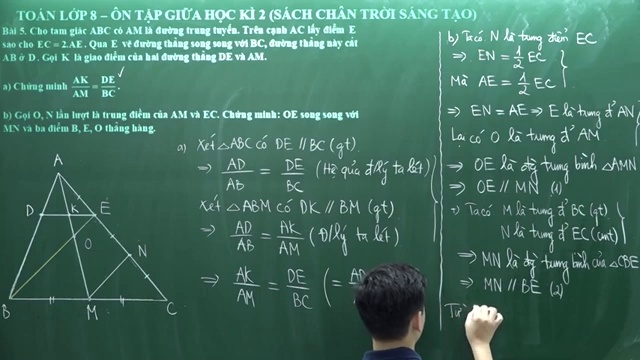 TOÁN LỚP 8 – ÔN TẬP GIỮA HỌC KÌ 2 (SÁCH CHÂN TRỜI SÁNG TẠO)
Bài 5. Cho tam giác ABC có AM là đường trung tuyến. Trên cạnh AC lấy điểm E
sao cho EC = 2.AE. Qua E vẽ đường thẳng song song với BC, đường thẳng này cắt
AB ở D. Gọi K là giao điểm của hai đường thẳng DE và AM.
a) Chứng minh AK/AM = DE/BC.
b) Gọi O, N lần lượt là trung điểm của AM và EC. Chứng minh: OE song song với
MN và ba điểm B, E, O thẳng hàng.
A
D
K
E
O
N
B
M
C
a) Xét △ABC có DE // BC (gt)
⇒ AD/AB = DE/BC (Hệ quả đ/lý ta lét)
Xét △ABM có DK // BM (gt)
⇒ AD/AB = AK/AM (Đ/lý ta lét)
⇒ AK/AM = DE/BC (= AD
b) Ta có N là trung điểm EC
⇒ EN = 1/2 EC
Mà AE = 1/2 EC
⇒ EN = AE ⇒ E là trung đ' AN
Lại có O là trung đ' AM
⇒ OE là đg trung bình △AMN
⇒ OE // MN (1)
+) Ta có M là trung đ' BC (gt)
N là trung đ' EC (cmt)
⇒ MN là đg trung bình của △CBE
⇒ MN // BE (2)
Từ